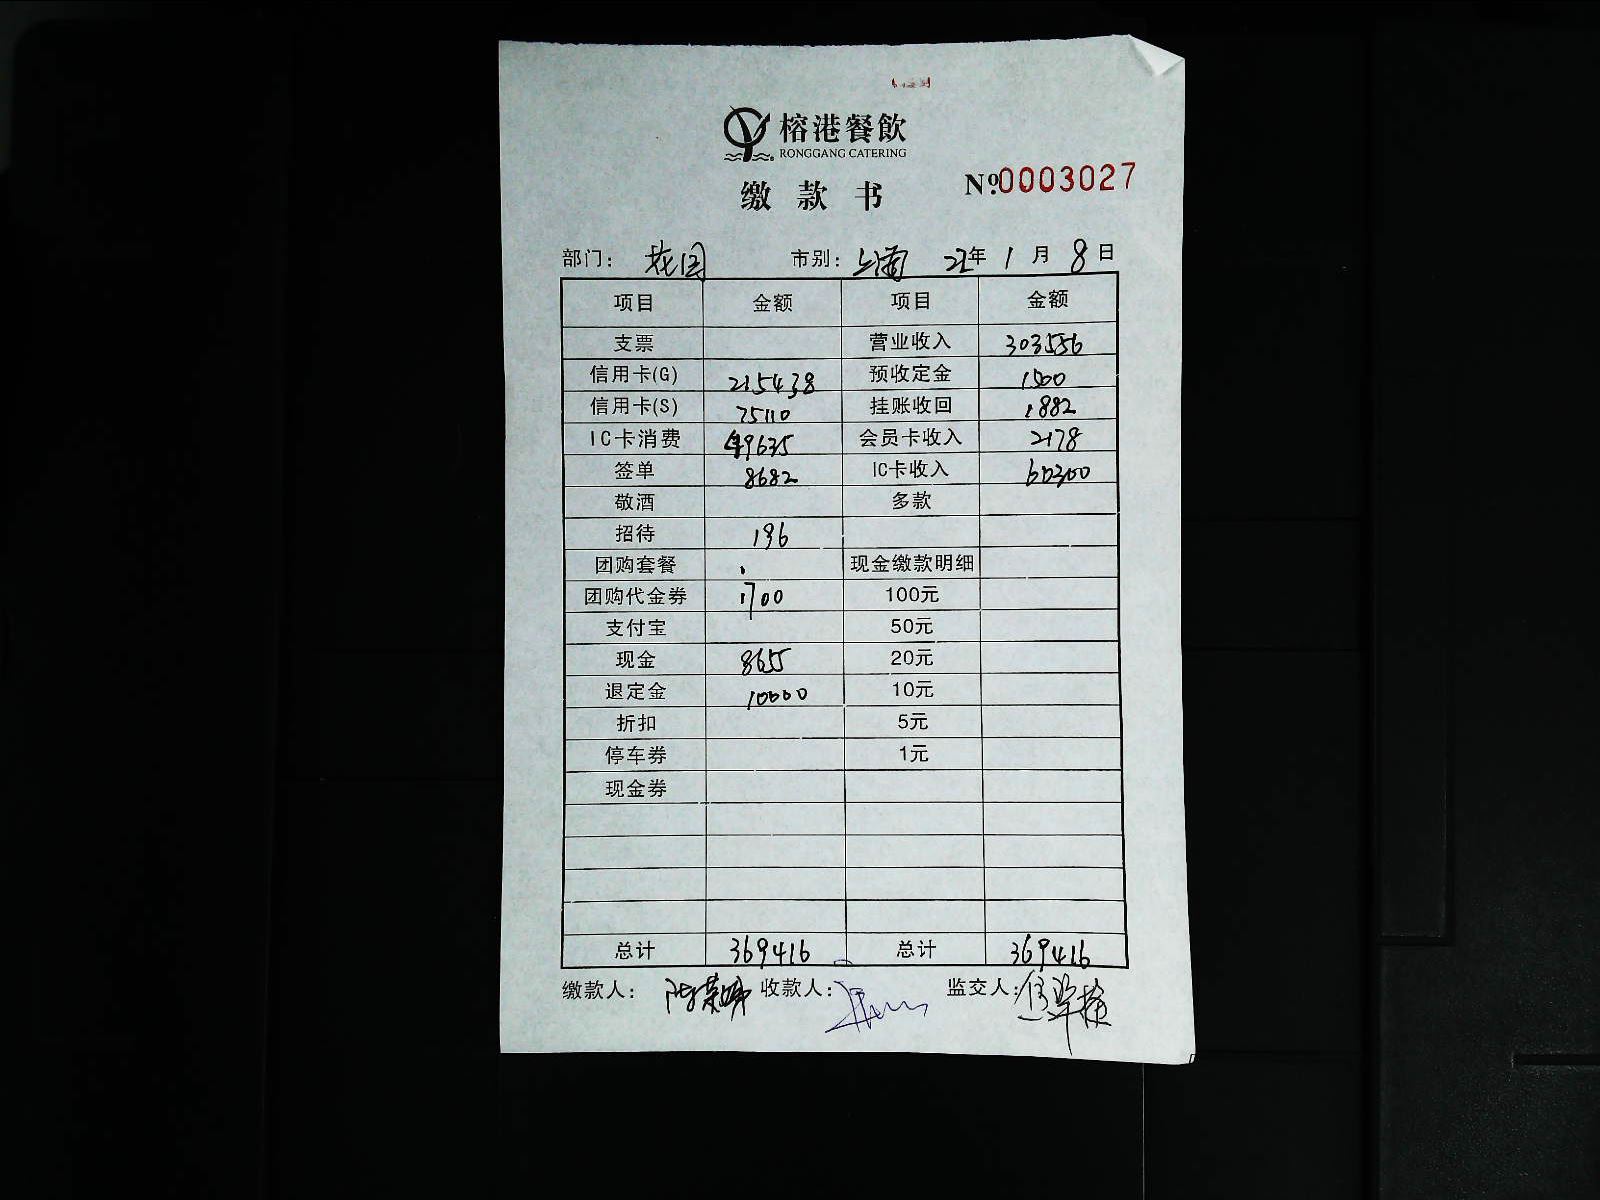 榕港餐飲
RONGGANG CATERING
缴款书
Nº:0003027
部门: 花园 市别: 22年 1月 8日
项目 金额 项目 金额
支票 营业收入 303556
信用卡(G) 215438 预收定金 1500
信用卡(S) 75110 挂账收回 1882
IC卡消费 49635 会员卡收入 2178
签单 8682 IC卡收入 60300
敬酒 多款
招待 196
团购套餐 现金缴款明细
团购代金券 1700 100元
支付宝 50元
现金 8655 20元
退定金 10000 10元
折扣 5元
停车券 1元
现金券
总计 369416 总计 369416
缴款人: 收款人: 监交人: